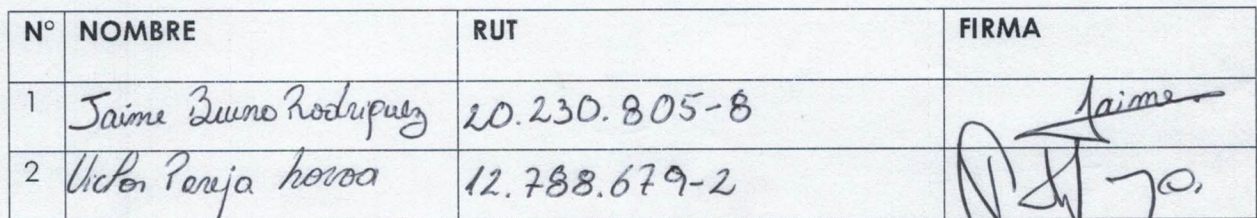 N° NOMBRE RUT FIRMA
1 Jaime Bueno Rodriguez 20.230.805-8 Jaime
2 Victor Pareja 12.788.679-2